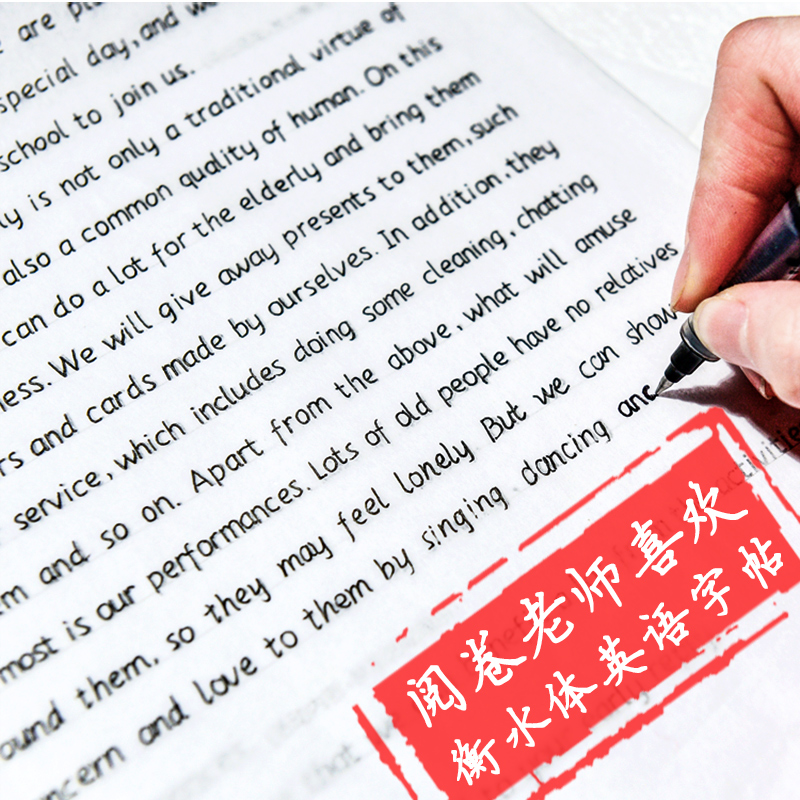 are
special day, and
school to join us.
is not only a traditional virtue of
also a common quality of human. On this
can do a lot for the elderly and bring them
We will give away presents to them, such
and cards made by ourselves. In addition, they
service, which includes doing some cleaning, chatting
and so on. Apart from the above, what will amuse
most is our performances. Lots of old people have no relatives
them, so they may feel lonely But we can show
and love to them by singing dancing and
阅卷老师喜欢
衡水体英语字帖